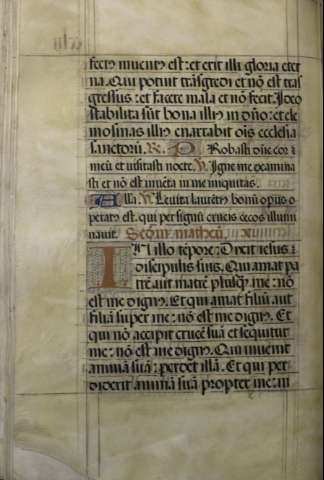 fectus inuentus est: et erit illi gloria eter
na. Qui potuit trãsgredi et nõ est trãs
gressus: et facere mala et nõ fecit. Ideo
stabilita sũt bona illius in dño: et ele
mosinas illius enarrabit oĩs ecclesia
sanctorũ. R. Probasti dñe cor
meũ et uisitasti nocte. V. Igne me examina
sti et nõ est inuẽta in me iniquitas.
Alla. V. Leuita laurẽtius bonũ opus o
peratus est. qui per signũ crucis cecos illumi
nauit. Secundũ matheũ.
IN illo tẽpore: Dixit iesus
discipulis suis. Qui amat pa
trẽ aut matrẽ plusq̃ me: nõ
est me dignus. Et qui amat filiũ aut
filiã super me: nõ est me dignus. Et
qui nõ accipit crucẽ suã et sequitur
me: nõ est me dignus. Qui inuenit
animã suã: perdet illã. Et qui per
diderit animã suã propter me: in